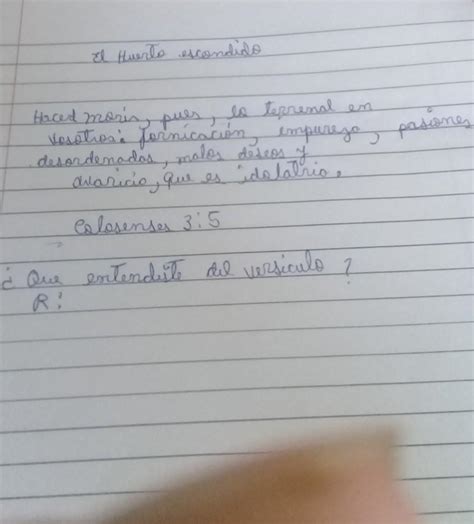 El Huerto escondido
Haced morir, pues, lo terrenal en
vosotros: fornicación, impureza, pasiones
desordenadas, malos deseos y
avaricia, que es idolatria.
Colosenses 3:5
¿ Que entendiste del versiculo ?
R: